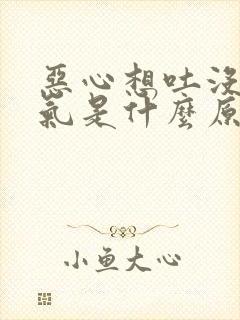 惡心想吐沒
氣是什麼原
小鱼大心